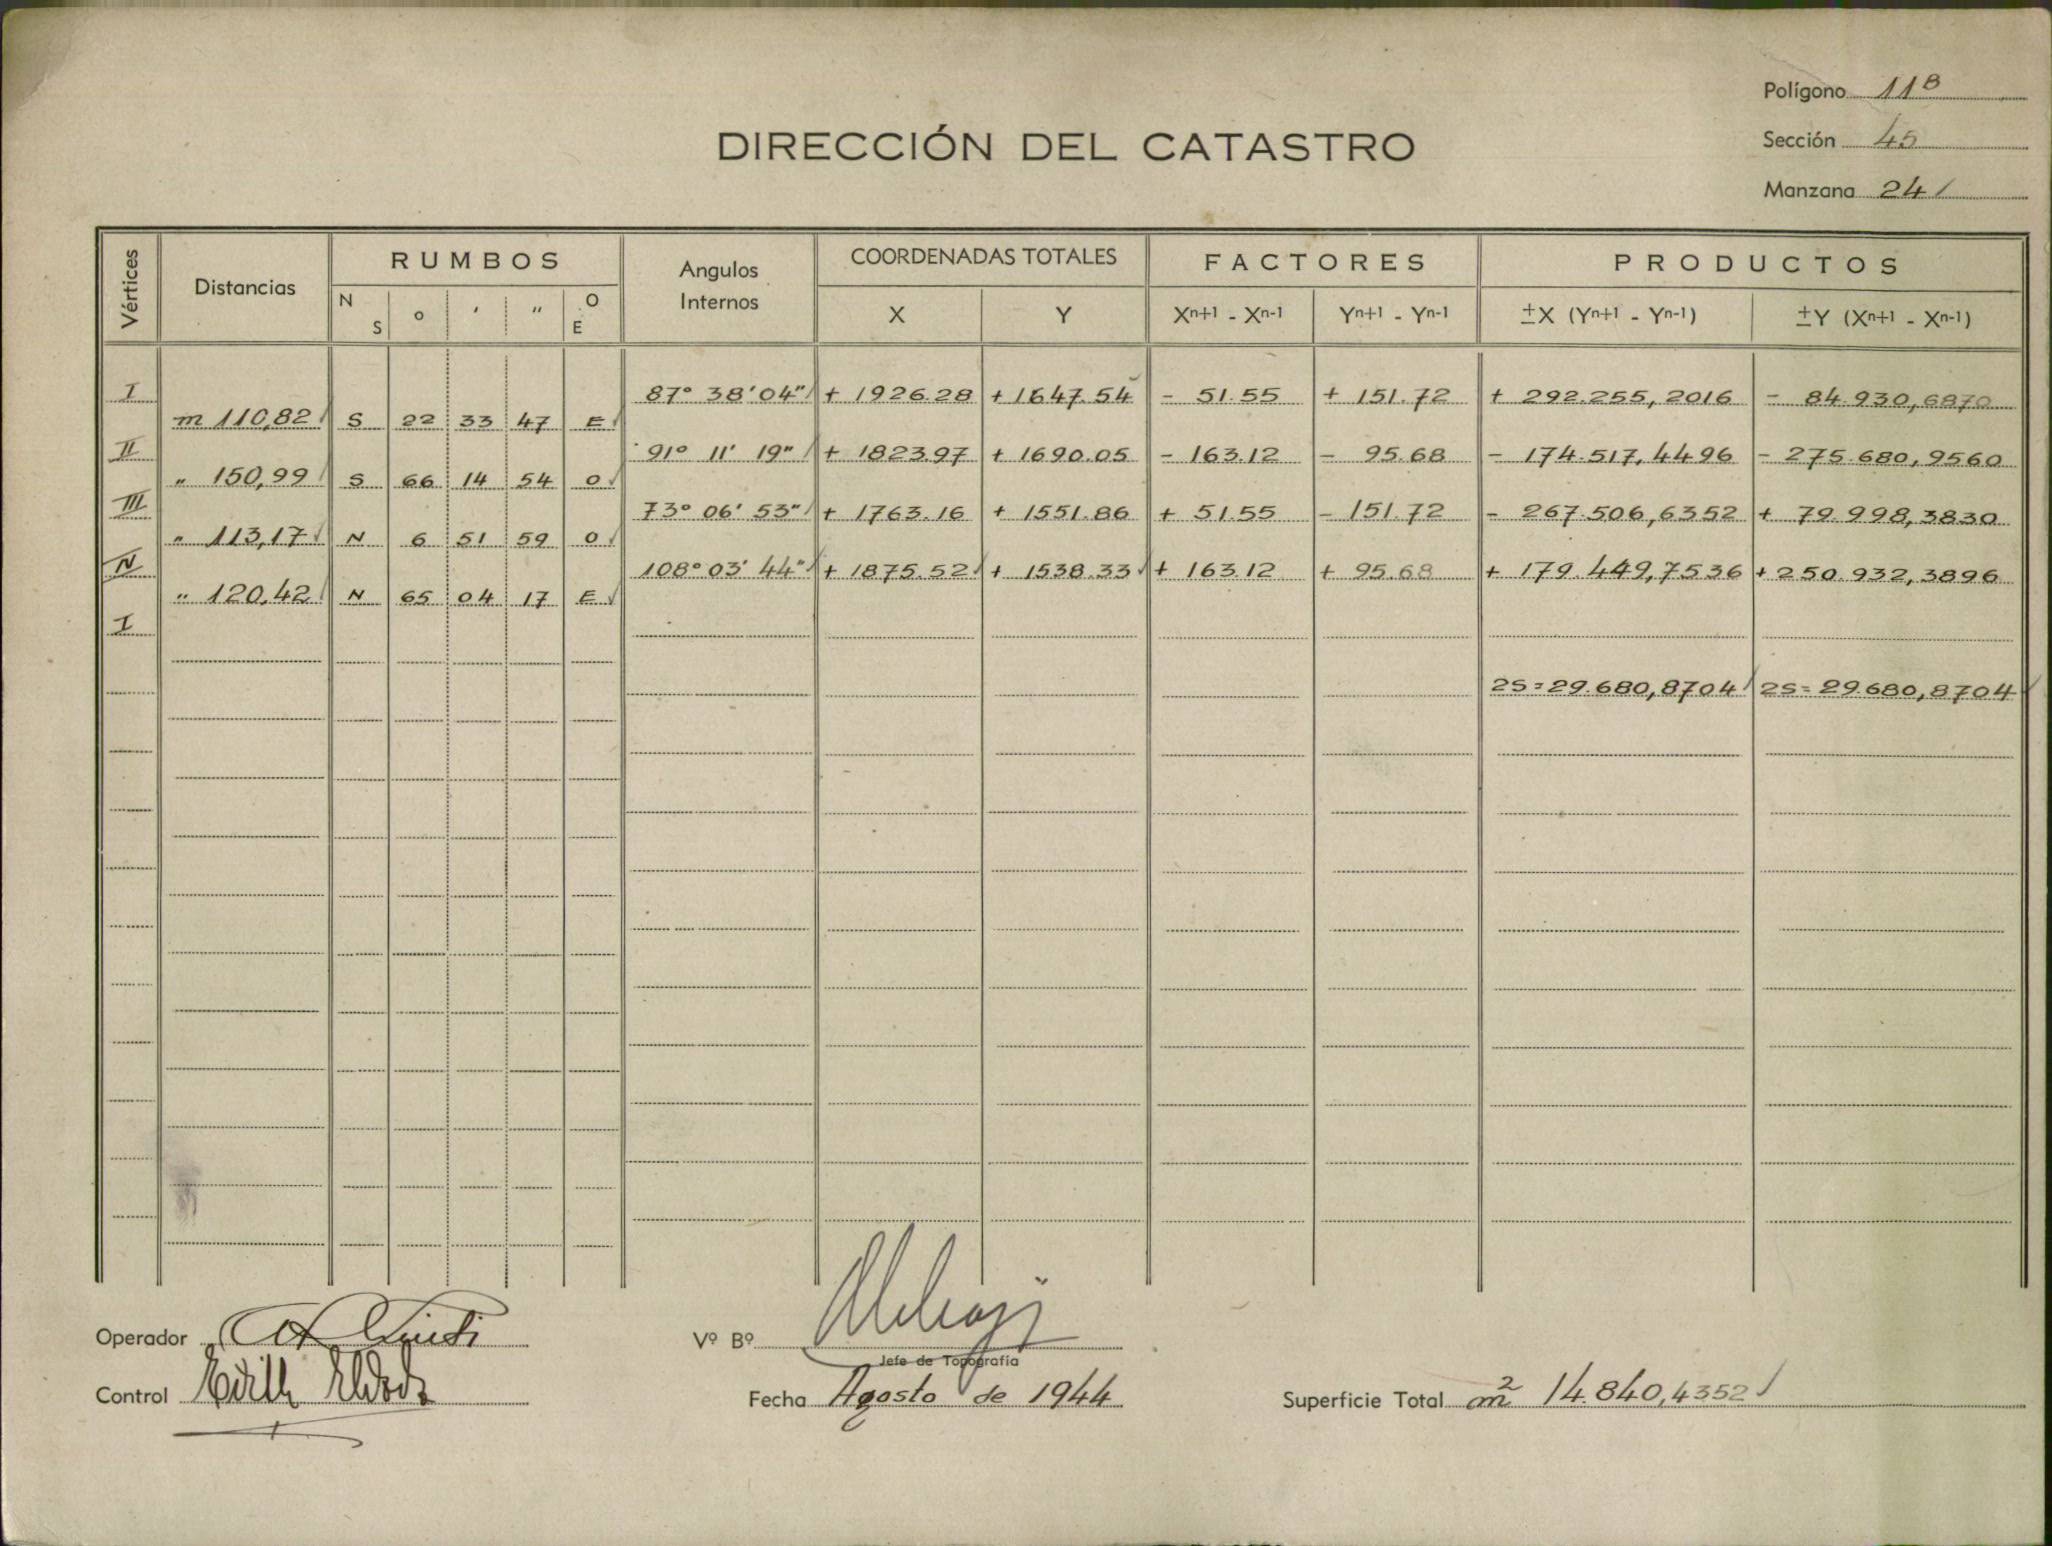 Polígono 11 B
DIRECCIÓN DEL CATASTRO
Sección 45
Manzana 24
Vértices Distancias RUMBOS Angulos Internos COORDENADAS TOTALES FACTORES PRODUCTOS
N S ° ' " O E X Y Xn+1 - Xn-1 Yn+1 - Yn-1 ±X (Yn+1 - Yn-1) ±Y (Xn+1 - Xn-1)
I 87° 38' 04" + 1926.28 + 1647.54 - 51.55 + 151.72 + 292.255,2016 - 84.930,6870
m 110,82 S 22 33 47 E
II 91° 11' 19" + 1823.97 + 1690.05 - 163.12 - 95.68 - 174.517,4496 - 275.680,9560
" 150,99 S 66 14 54 O
III 73° 06' 53" + 1763.16 + 1551.86 + 51.55 - 151.72 - 267.506,6352 + 79.998,3830
" 113,17 N 6 51 59 O
IV 108° 03' 44" + 1875.52 + 1538.33 + 163.12 + 95.68 + 179.449,7536 + 250.932,3896
" 120,42 N 65 04 17 E
I
2S = 29.680,8704 2S = 29.680,8704
Operador
Vº Bº
Jefe de Topografía
Control
Fecha Agosto de 1944
Superficie Total m2 14.840,4352